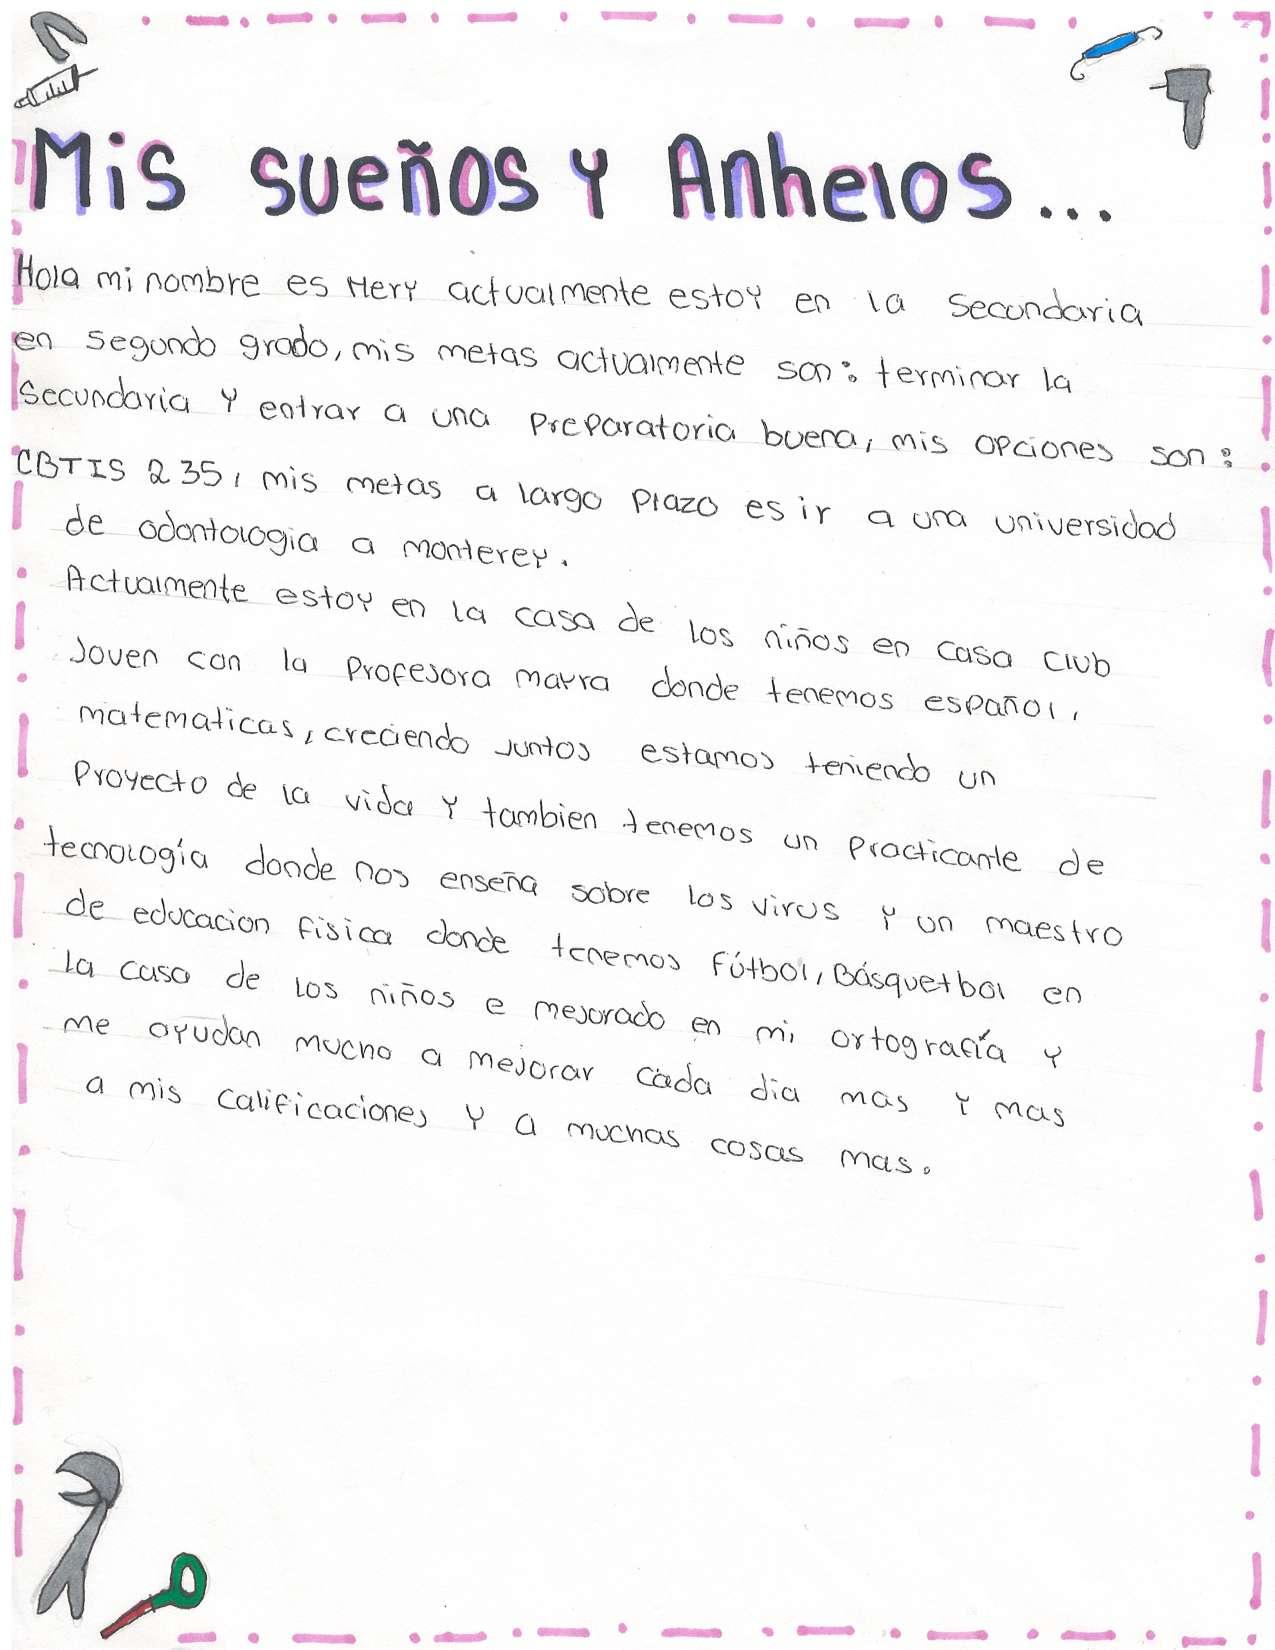 Mis sueños y Anhelos...
Hola mi nombre es Mery actualmente estoy en la secundaria
en segundo grado, mis metas actualmente son: terminar la
secundaria y entrar a una preparatoria buena, mis opciones son:
CBTIS 235, mis metas a largo plazo es ir a una universidad
de odontologia a monterey.
Actualmente estoy en la casa de los niños en casa club
Joven con la profesora mayra donde tenemos español,
matematicas, creciendo juntos estamos teniendo un
proyecto de la vida y tambien tenemos un practicante de
tecnología donde nos enseña sobre los virus y un maestro
de educacion fisica donde tenemos fútbol, Básquetbol en
la casa de los niños e mejorado en mi ortografía y
me ayudan mucho a mejorar cada dia mas y mas
a mis calificaciones y a muchas cosas mas.